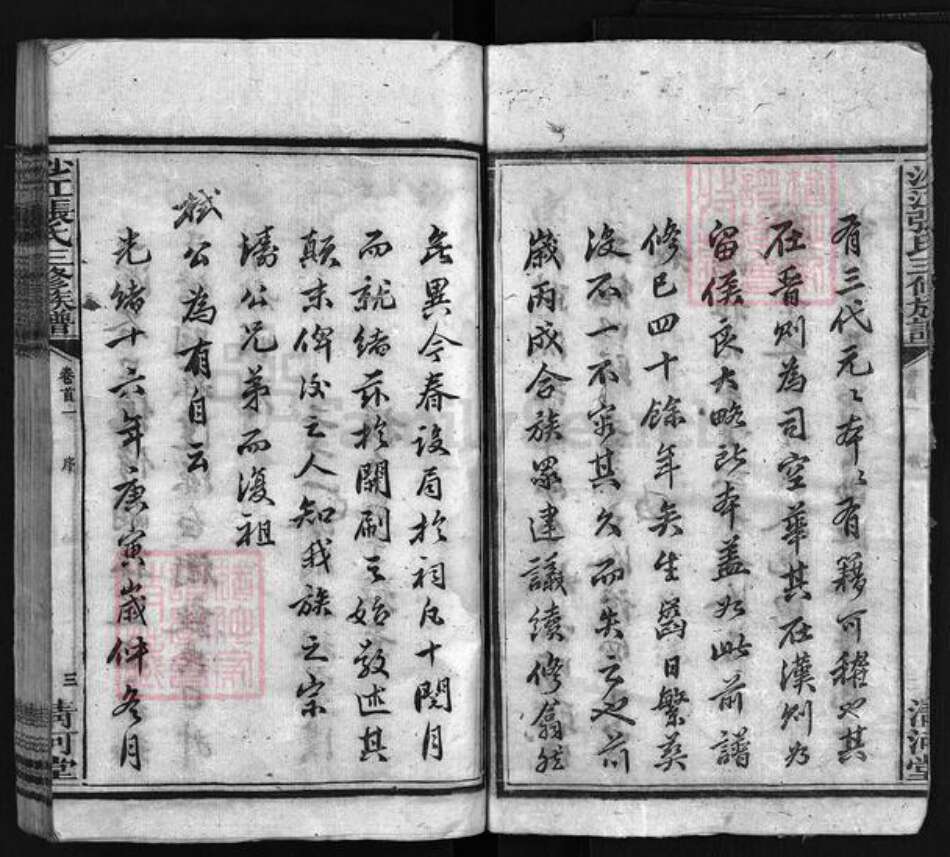 沙江張氏三修族譜
清河堂
有三代元元本本有籍可稽也其
在晉則為司空華其在漢則為
留侯良大略所本蓋如此前譜
修已四十餘年矣生齒日繁葬
沒不一不窮其久而失之也前
歲丙戌合族眾建議續修翕然
無異今春設局於祠凡十閱月
而就緒茲於開刷之始敬述其
顛末俾後之人知我族之宗
濤公兄弟而復祖
栻公為有自云
光緒十六年庚寅歲仲冬月
沙江張氏三修族譜
卷首一
序
三
清河堂